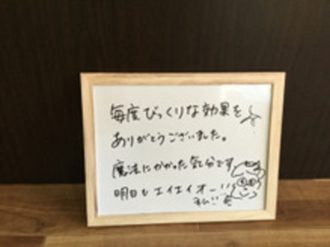 毎度びっくりな効果を
ありがとうございました。
魔法にかかった気分です
明日もエイエイオー!!